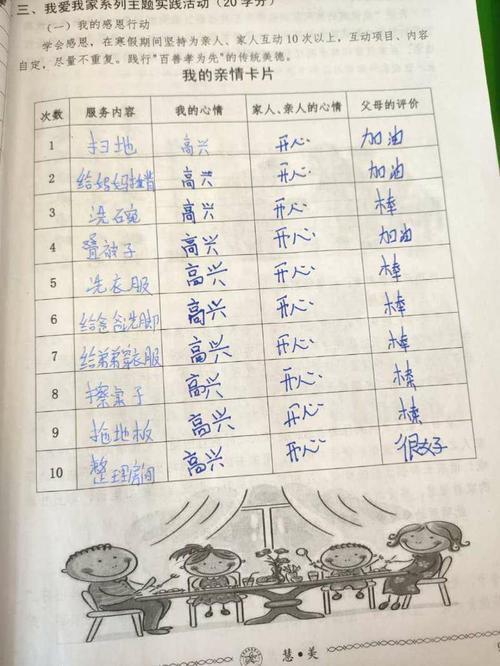 三、我爱我家系列主题实践活动（20学分）
（一）我的感恩行动
学会感恩，在寒假期间坚持为亲人、家人互动10次以上，互动项目、内容
自定，尽量不重复。践行"百善孝为先"的传统美德。
我的亲情卡片
次数 服务内容 我的心情 家人、亲人的心情 父母的评价
1 扫地 高兴 开心 加油
2 给妈妈捶背 高兴 开心 加油
3 洗碗 高兴 开心 棒
4 叠被子 高兴 开心 加油
5 洗衣服 高兴 开心 棒
6 给爸爸洗脚 高兴 开心 棒
7 给弟弟穿衣服 高兴 开心 棒
8 擦桌子 高兴 开心 棒
9 拖地板 高兴 开心 棒
10 整理房间 高兴 开心 很好
慧·美